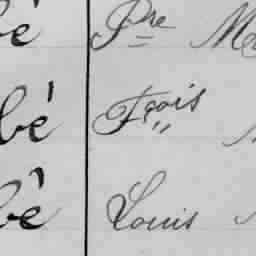 bé Pre M
bé Fçois
bé Louis